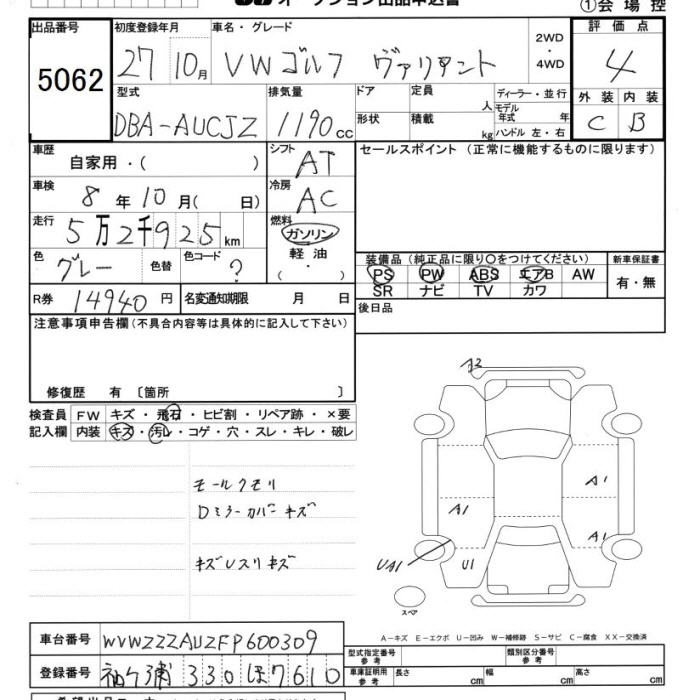 オークション出品申込書
①会場控
出品番号 初度登録年月 車名・グレード 2WD・4WD 評価点
5062 27 10月 VW ゴルフ ヴァリアント 4
型式 排気量 ドア 定員 人 ディーラー・並行 外装 内装
DBA-AUCJZ 1190cc 形状 積載 kg モデル年式 年 ハンドル 左・右 C B
車歴 自家用・( ) シフト AT セールスポイント (正常に機能するものに限ります)
車検 8年10月( 日) 冷房 AC
走行 5万2千925km 燃料 ガソリン 軽油 ・( ・ )
色 グレー 色替 色コード ?
装備品(純正品に限り○をつけてください) 新車保証書
PS PW ABS エアB AW 有・無
SR ナビ TV カワ
R券 14940円 名変通知期限 月 日 後日品
注意事項申告欄(不具合内容等は具体的に記入して下さい)
修復歴 有 〔箇所 〕
検査員 FW キズ・飛石・ヒビ割・リペア跡・×要
記入欄 内装 キズ・汚レ・コゲ・穴・スレ・キレ・破レ
モールクモリ
Dミラーカバーキズ
キズUスリキズ
A2
A1
A1
A1
UA1
U1
スペア
A-キズ E-エクボ U-凹み W-補修跡 S-サビ C-腐食 XX-交換済
車台番号 WVWZZZAUZFP600309 型式指定番号 参考 類別区分番号 参考
登録番号 袖ケ浦 330 ほ 7610 車庫証明用 参考 長さ cm 幅 cm 高さ cm